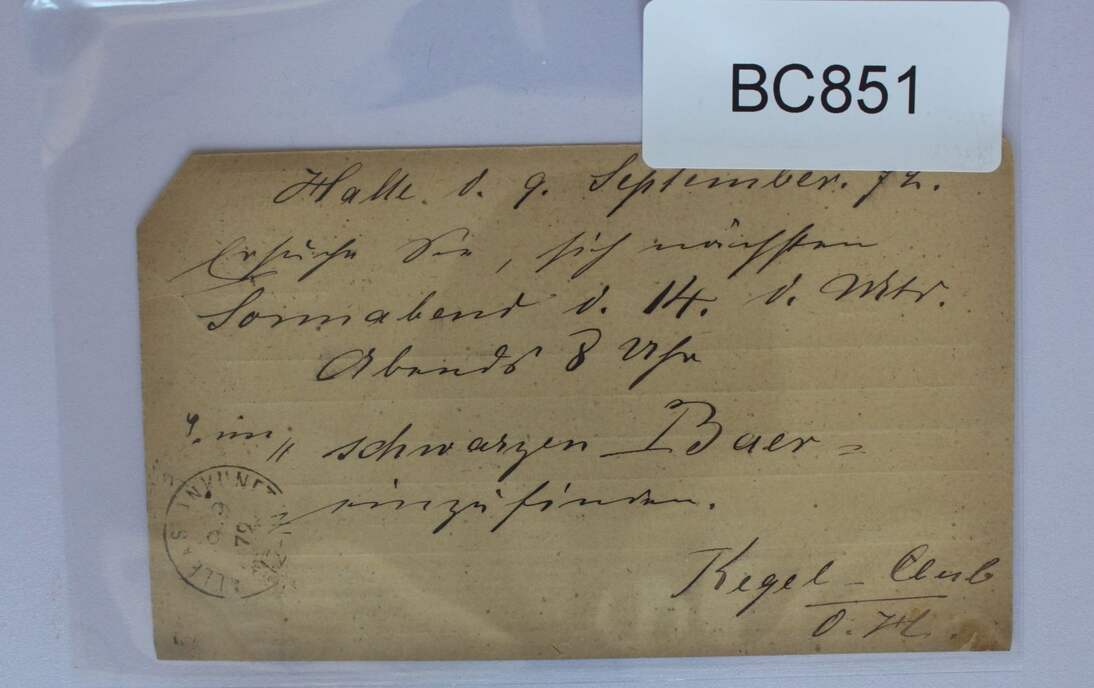 BC851
Halle d. 9. September. 72.
Ersuche Sie, sich nächsten
Sonnabend d. 14. d. Mts.
Abends 8 Uhr
im „schwarzen Baer"
einzufinden.
Kegel-Club